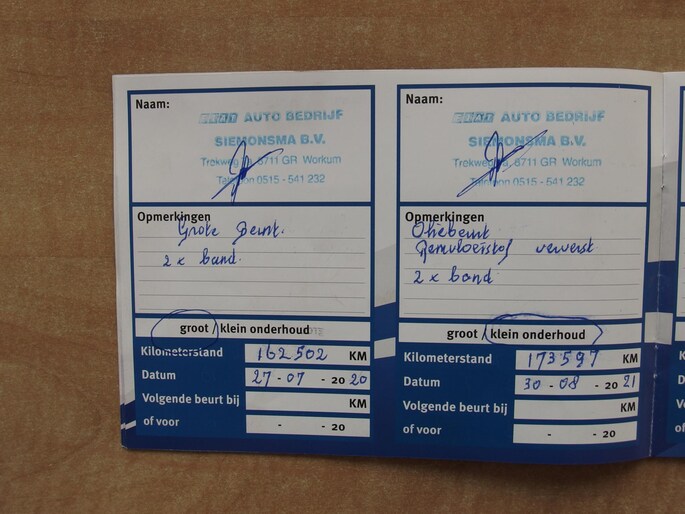 Naam:
AUTO BEDRIJF
SIEMONSMA B.V.
Trekweg 8711 GR Workum
Telefoon 0515 - 541 232
Opmerkingen
Grote Beurt.
2 x band.
groot / klein onderhoud
Kilometerstand 162502 KM
Datum 27-07 - 20 20
Volgende beurt bij KM
of voor - - 20
Naam:
AUTO BEDRIJF
SIEMONSMA B.V.
Trekweg 8711 GR Workum
Telefoon 0515 - 541 232
Opmerkingen
Oliebeurt
Remvloeistof ververst
2 x band
groot / klein onderhoud
Kilometerstand 173597 KM
Datum 30-08 - 20 21
Volgende beurt bij KM
of voor - - 20